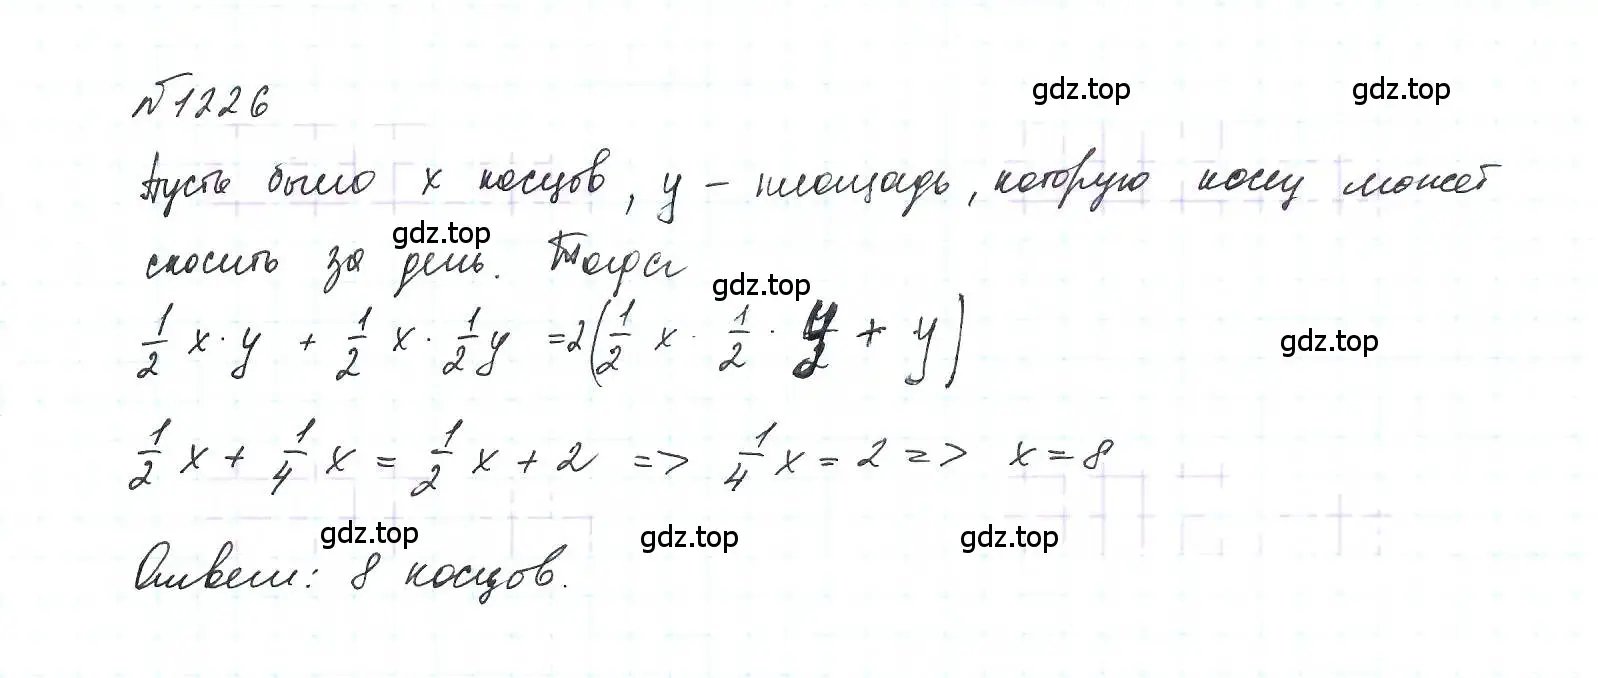 №1226
gdz.top gdz.top
Пусть было x косцов, y – площадь, которую косец может
gdz.top
скосить за день. Тогда
gdz.top
1/2 x · y + 1/2 x · 1/2 y = 2(1/2 x · 1/2 · y/2 + y)
gdz.top
1/2 x + 1/4 x = 1/2 x + 2 => 1/4 x = 2 => x = 8
gdz.top gdz.top gdz.top
Ответ: 8 косцов.